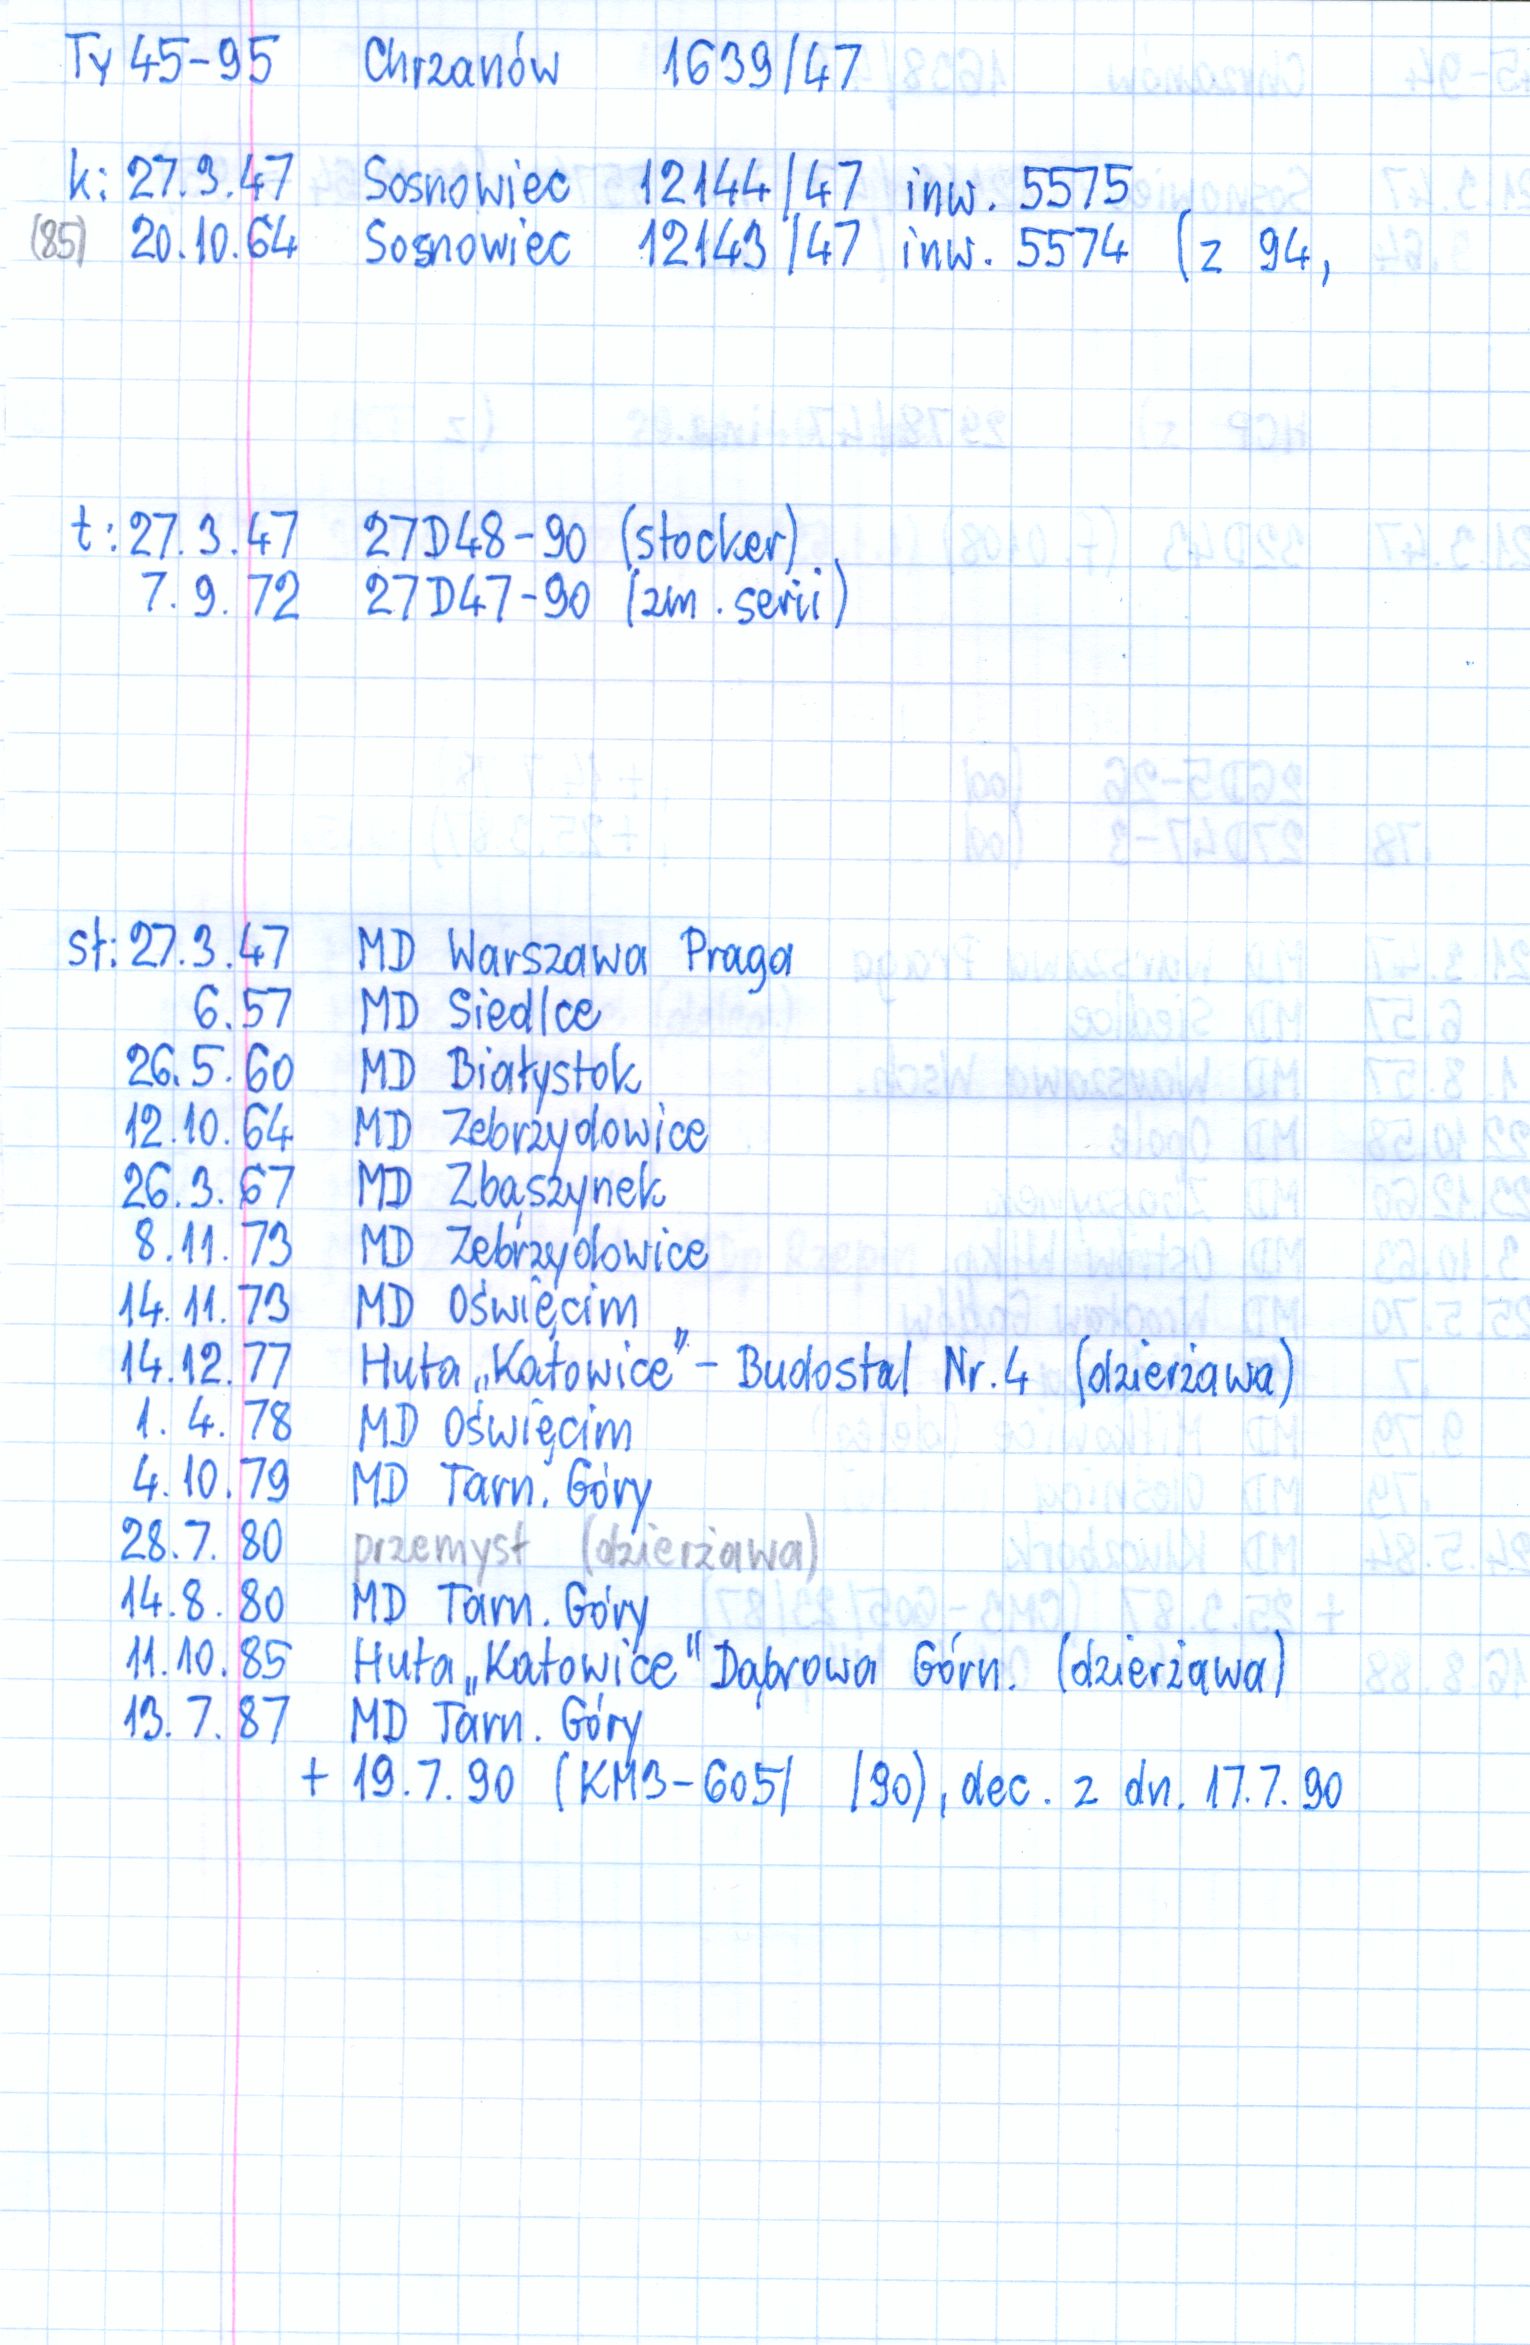 Ty 45-95 Chrzanów 1639/47
k: 27.3.47 Sosnowiec 12144/47 inw. 5575
(85) 20.10.64 Sosnowiec 12143/47 inw. 5574 (z 94,
t: 27.3.47 27D48-90 (stocker)
7.9.72 27D47-90 (zm. serii)
st: 27.3.47 MD Warszawa Praga
6.57 MD Siedlce
26.5.60 MD Białystok
12.10.64 MD Zebrzydowice
26.3.67 MD Zbąszynek
8.11.73 MD Zebrzydowice
14.11.73 MD Oświęcim
14.12.77 Huta „Katowice" - Budostal Nr.4 (dzierżawa)
1.4.78 MD Oświęcim
4.10.79 MD Tarn. Góry
28.7.80 przemysł (dzierżawa)
14.8.80 MD Tarn. Góry
11.10.85 Huta „Katowice" Dąbrowa Górn. (dzierżawa)
13.7.87 MD Tarn. Góry
+ 19.7.90 (KM3-605/ /90), dec. z dn. 17.7.90